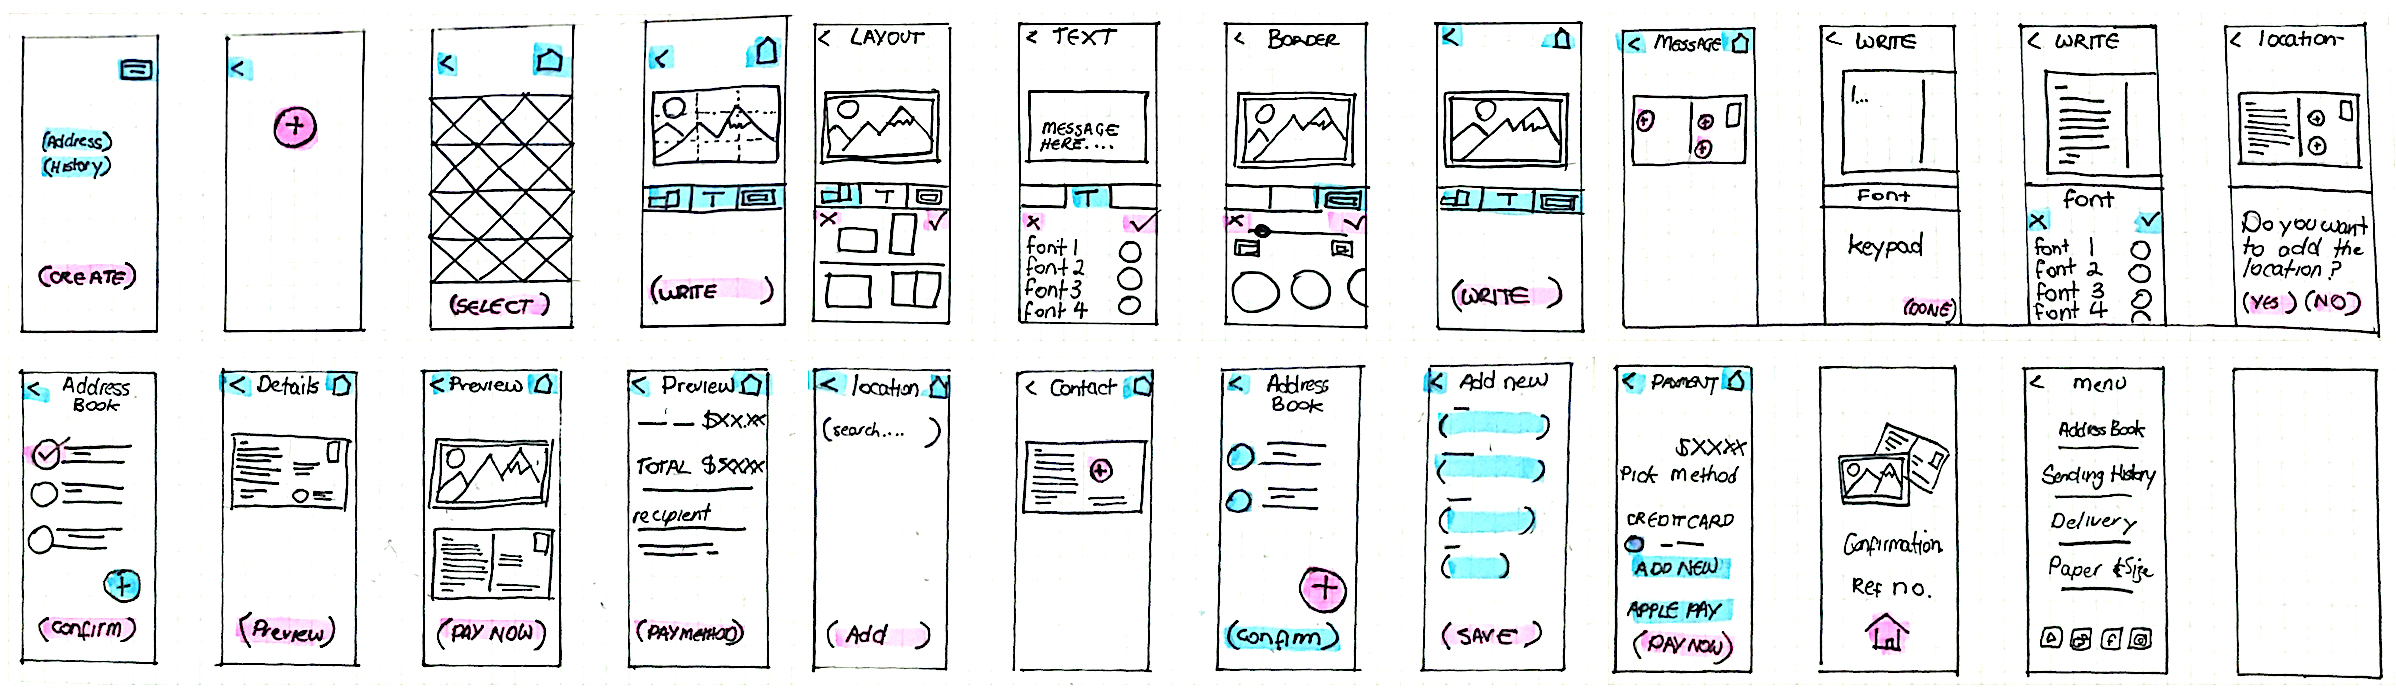 (Address)
(History)
(CREATE)
<
+
<
(SELECT)
<
T
(WRITE)
< LAYOUT
T
X ✓
< TEXT
MESSAGE
HERE....
T
X ✓
font 1
font 2
font 3
font 4
< BORDER
X ✓
<
T
(WRITE)
< MESSAGE
+
+
+
< WRITE
I...
Font
keypad
(DONE)
< WRITE
font
X ✓
font 1
font 2
font 3
font 4
< location
+
+
Do you want
to add the
location?
(YES) (NO)
< Address
Book
✓
+
(Confirm)
< Details
(Preview)
< Preview
(PAY NOW)
< Preview
— — $XX.XX
TOTAL $XXXX
recipient
(PAY METHOD)
< location
(search....)
(Add)
< Contact
+
< Address
Book
+
(Confirm)
< Add new
(SAVE)
< PAYMENT
$XXXX
Pick method
CREDIT CARD
ADD NEW
APPLE PAY
(PAY NOW)
Confirmation
Ref no.
< menu
Address Book
Sending History
Delivery
Paper & Size
f